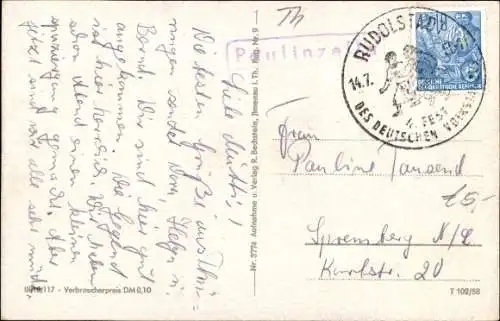 Liebe Mutti!
Die besten Grüße aus Thü-
ringen sendet Dir Helga u.
Bernd. Wir sind hier gut
angekommen. Die Gegend
ist hier herrlich. Wir haben
schon Abend einen kleinen
Spaziergang gemacht. Aber
jetzt sind wir alle sehr müde.
III/18/117 - Verbraucherpreis DM 0,10
Nr. 2774 Aufnahme u. Verlag R. Bechstein, Ilmenau i. Th. Nr. 9
Th
Paulinze
RUDOLSTADT
14.7.
4. FEST
DES DEUTSCHEN VOLKSTA
DEUTSCHE DEMOKRATISCHE REPUBLIK
5
Frau
Pauline Tausend
15,-
Spremberg N/L
Karlstr. 20
T 109/58